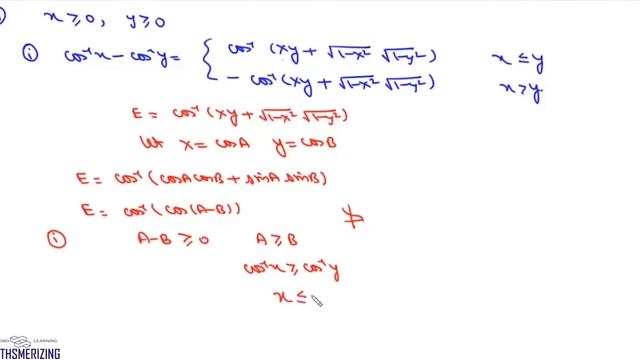 x ≥ 0, y ≥ 0
① cos⁻¹x − cos⁻¹y = { cos⁻¹(xy + √1−x² √1−y²) x ≤ y
− cos⁻¹(xy + √1−x² √1−y²) x > y
E = cos⁻¹(xy + √1−x² √1−y²)
let x = cosA y = cosB
E = cos⁻¹(cosA cosB + sinA sinB)
E = cos⁻¹(cos(A−B))
① A−B ≥ 0 A ≥ B
cos⁻¹x ≥ cos⁻¹y
x ≤
LEARNING
THSMERIZING